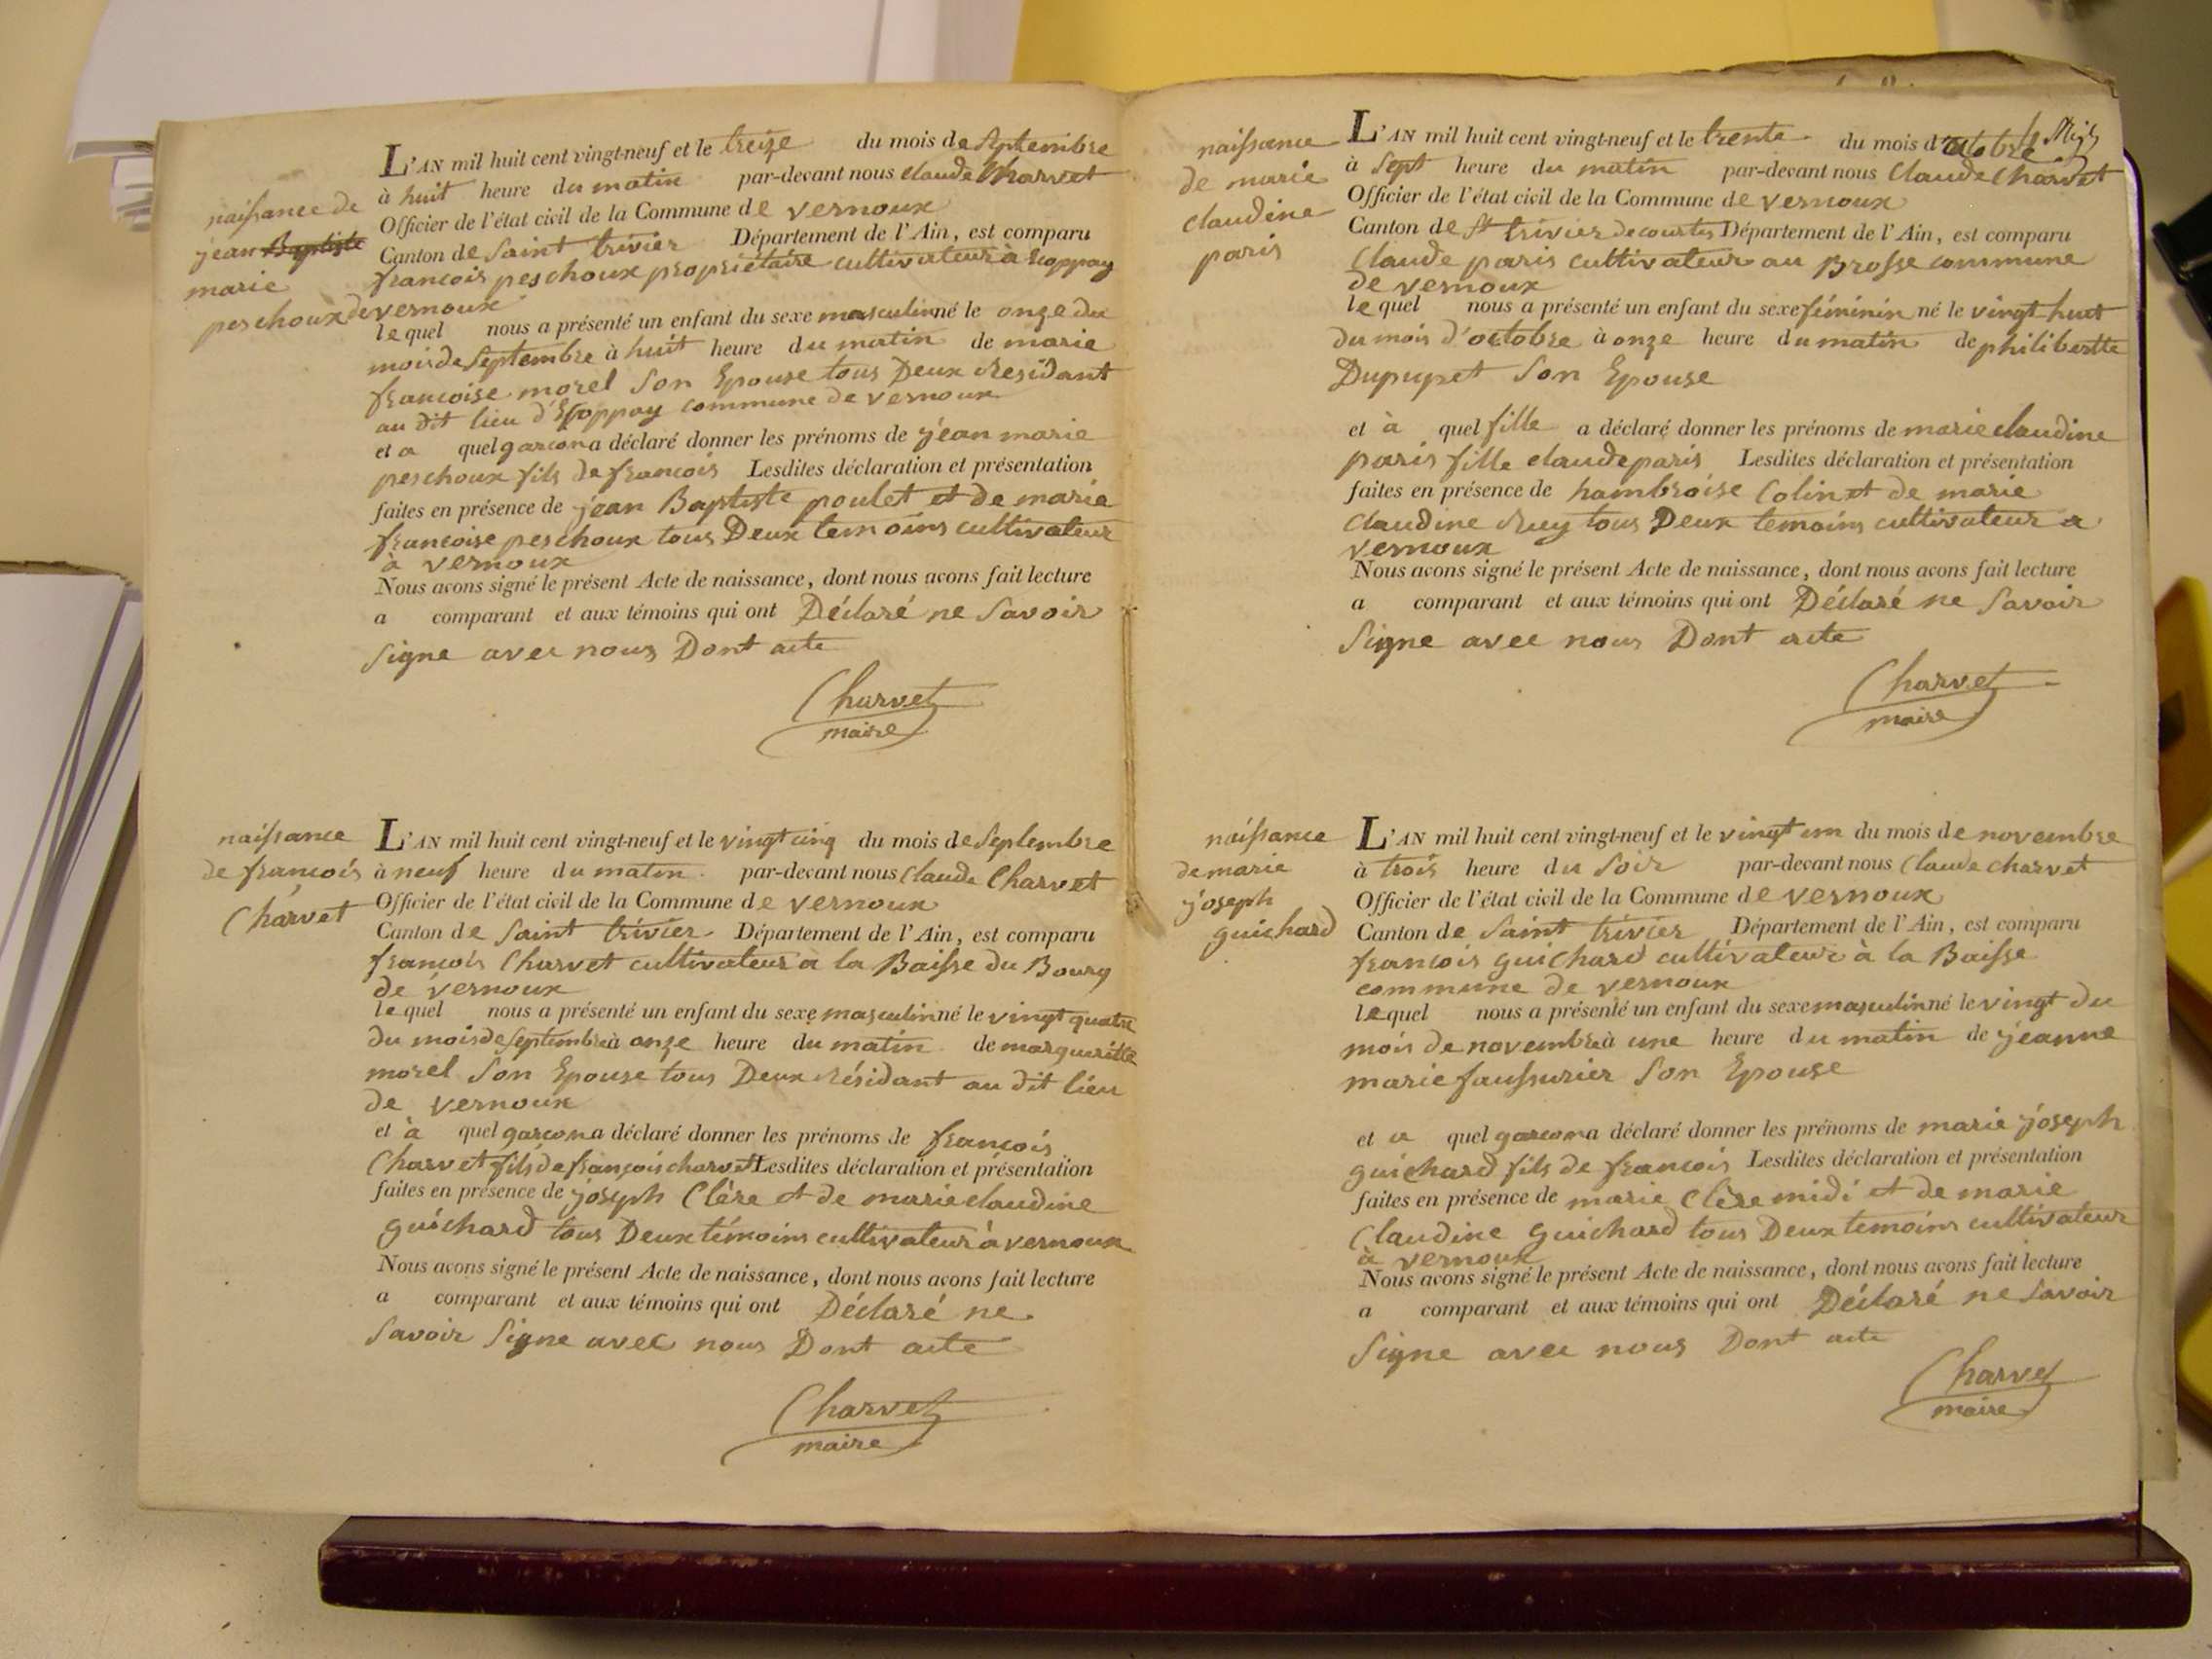 naissance de
jean Baptiste
marie
peschoux
L'AN mil huit cent vingt-neuf et le treize du mois de Septembre
à huit heure du matin par-devant nous claude Charvet
Officier de l'état civil de la Commune de vernoux
Canton de Saint trivier Département de l'Ain, est comparu
francois peschoux propriétaire cultivateur à Escoppay
de vernoux
le quel nous a présenté un enfant du sexe masculin né le onze du
mois de Septembre à huit heure du matin de marie
francoise morel Son Epouse tous Deux residant
au dit lieu d'Escoppay commune de vernoux
et a quel garcon a déclaré donner les prénoms de jean marie
peschoux fils de francois Lesdites déclaration et présentation
faites en présence de jean Baptiste poulet et de marie
francoise peschoux tous Deux temoins cultivateur
à vernoux
Nous avons signé le présent Acte de naissance, dont nous avons fait lecture
a comparant et aux témoins qui ont Déclaré ne Savoir
Signe avec nous Dont acte
Charvet
maire
naissance
de francois
Charvet
L'AN mil huit cent vingt-neuf et le vingt cinq du mois de Septembre
à neuf heure du matin par-devant nous Claude Charvet
Officier de l'état civil de la Commune de vernoux
Canton de Saint trivier Département de l'Ain, est comparu
francois Charvet cultivateur a la Baisse du Bourg
de vernoux
le quel nous a présenté un enfant du sexe masculin né le vingt quatre
du mois de Septembre à onze heure du matin de margueritte
morel Son Epouse tous Deux résidant au dit lieu
de vernoux
et à quel garcon a déclaré donner les prénoms de francois
Charvet fils de francois charvet Lesdites déclaration et présentation
faites en présence de joseph Clère et de marie claudine
guichard tous Deux témoins cultivateur à vernoux
Nous avons signé le présent Acte de naissance, dont nous avons fait lecture
a comparant et aux témoins qui ont Déclaré ne
Savoir Signe avec nous Dont acte
Charvet
maire
naissance
de marie
claudine
paris
L'AN mil huit cent vingt-neuf et le trente du mois d'octobre
à Sept heure du matin par-devant nous Claude Charvet
Officier de l'état civil de la Commune de vernoux
Canton de St trivier de courtes Département de l'Ain, est comparu
Claude paris cultivateur au Brosse commune
de vernoux
le quel nous a présenté un enfant du sexe féminin né le vingt huit
du mois d'octobre à onze heure du matin de philibertte
Dupupet Son Epouse
et à quel fille a déclaré donner les prénoms de marie claudine
paris fille claude paris Lesdites déclaration et présentation
faites en présence de hambroise Colin et de marie
claudine Ruy tous Deux temoins cultivateur a
vernoux
Nous avons signé le présent Acte de naissance, dont nous avons fait lecture
a comparant et aux témoins qui ont Déclaré ne Savoir
Signe avec nous Dont acte
Charvet
maire
naissance
de marie
joseph
guichard
L'AN mil huit cent vingt-neuf et le vingt un du mois de novembre
à trois heure du Soir par-devant nous Claude charvet
Officier de l'état civil de la Commune de vernoux
Canton de Saint trivier Département de l'Ain, est comparu
francois guichard cultivateur à la Baisse
commune de vernoux
le quel nous a présenté un enfant du sexe masculin né le vingt du
mois de novembre à une heure du matin de jeanne
marie faussurier Son Epouse
et a quel garcon a déclaré donner les prénoms de marie joseph
guichard fils de francois Lesdites déclaration et présentation
faites en présence de marie Clère midi et de marie
Claudine guichard tous Deux temoins cultivateur
à vernoux
Nous avons signé le présent Acte de naissance, dont nous avons fait lecture
a comparant et aux témoins qui ont Déclaré ne Savoir
Signe avec nous Dont acte
Charvet
maire